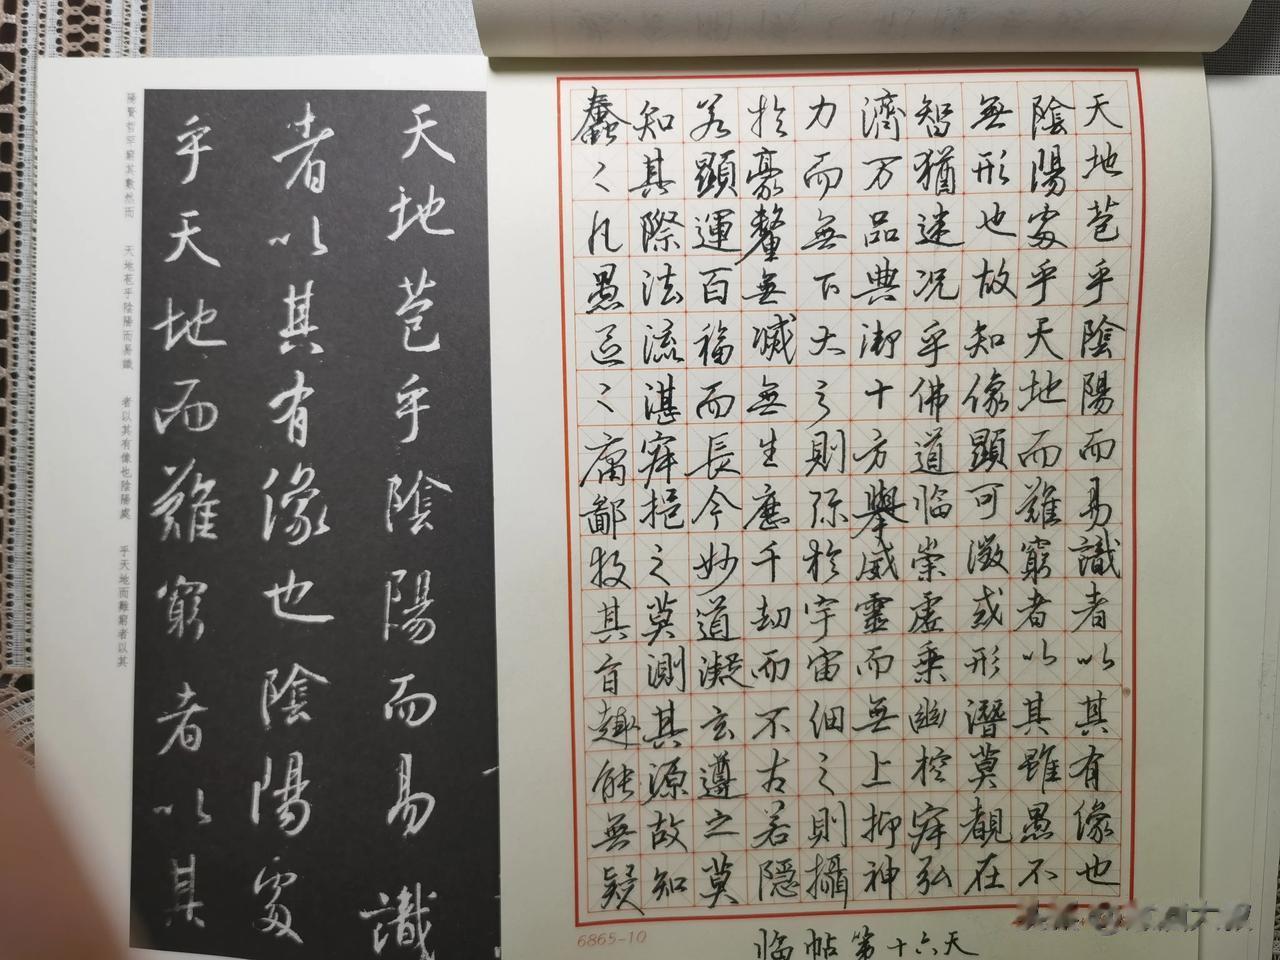 天地苞乎陰陽而易識者以其有像也
陰陽處乎天地而難窮者以其雖愚不
無形也故知像顯可徵或形潛莫覩在
智猶迷況乎佛道临崇虛乘幽控寂弘
濟万品典御十方舉威靈而無上抑神
力而無下大之則弥於宇宙細之則攝
於豪釐無滅無生應千劫而不古若隱
若顯運百福而長今妙道凝玄遵之莫
知其際法流湛寂挹之莫測其源故知
蠢々凡愚區々庸鄙投其旨趣能無疑
6865-10
临帖第十六天
天地苞乎陰陽而易識
者以其有像也陰陽處
乎天地而難窮者以其
陽賢哲罕窮其數然而 天地苞乎陰陽而易識 者以其有像也陰陽處 乎天地而難窮者以其